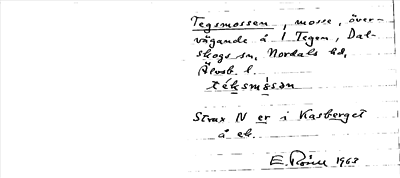 Tegsmossen, mosse, över-
vägande å 1 Tegen, Dal-
skogs sn, Nordals hd,
Älvsb. l.
Strax N er i Kasberget
å ek.
E. Rönn 1963